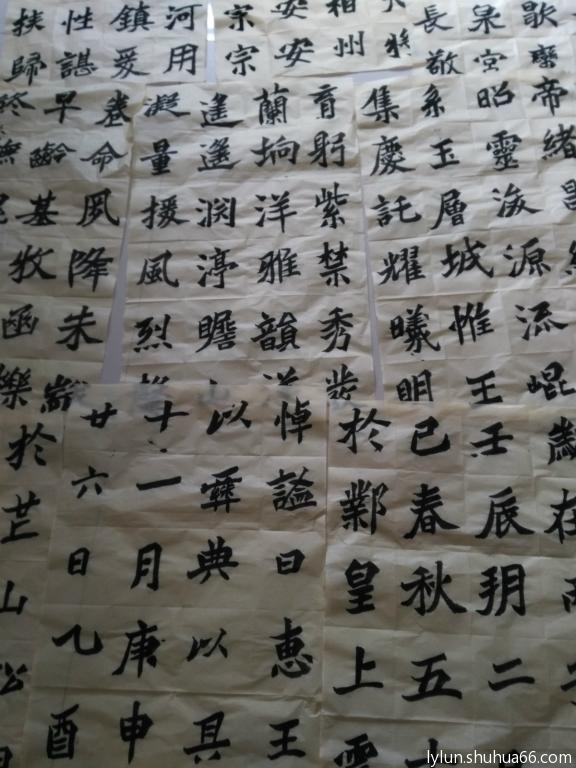 泉宮
長敬
相州
安安
宗宗
河用
鎮爰
性諶
挟歸
帝緒
昭靈海源流崐
系玉層城惟王
集慶託耀曦明
育躬紫禁秀
蘭坰洋雅韻
遙遙渊渟瞻
凝量援風烈
命夙降朱
早齡基牧凾
歲在
壬辰玥二
已春秋五
於鄴皇上震
悼謚曰恵王
以彝典以具
十一月庚申
廿六日乙酉
於芷山
lylun.shuhua66.com